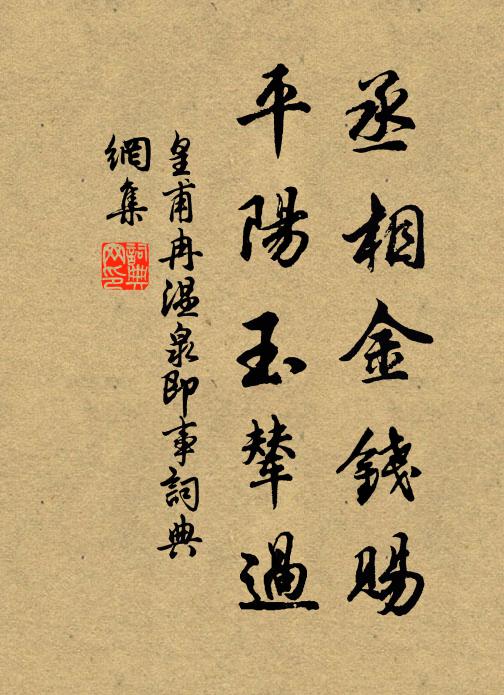 丞相金錢賜
平陽玉輦過
皇甫冉溫泉即事詞典
網集
詞典網印